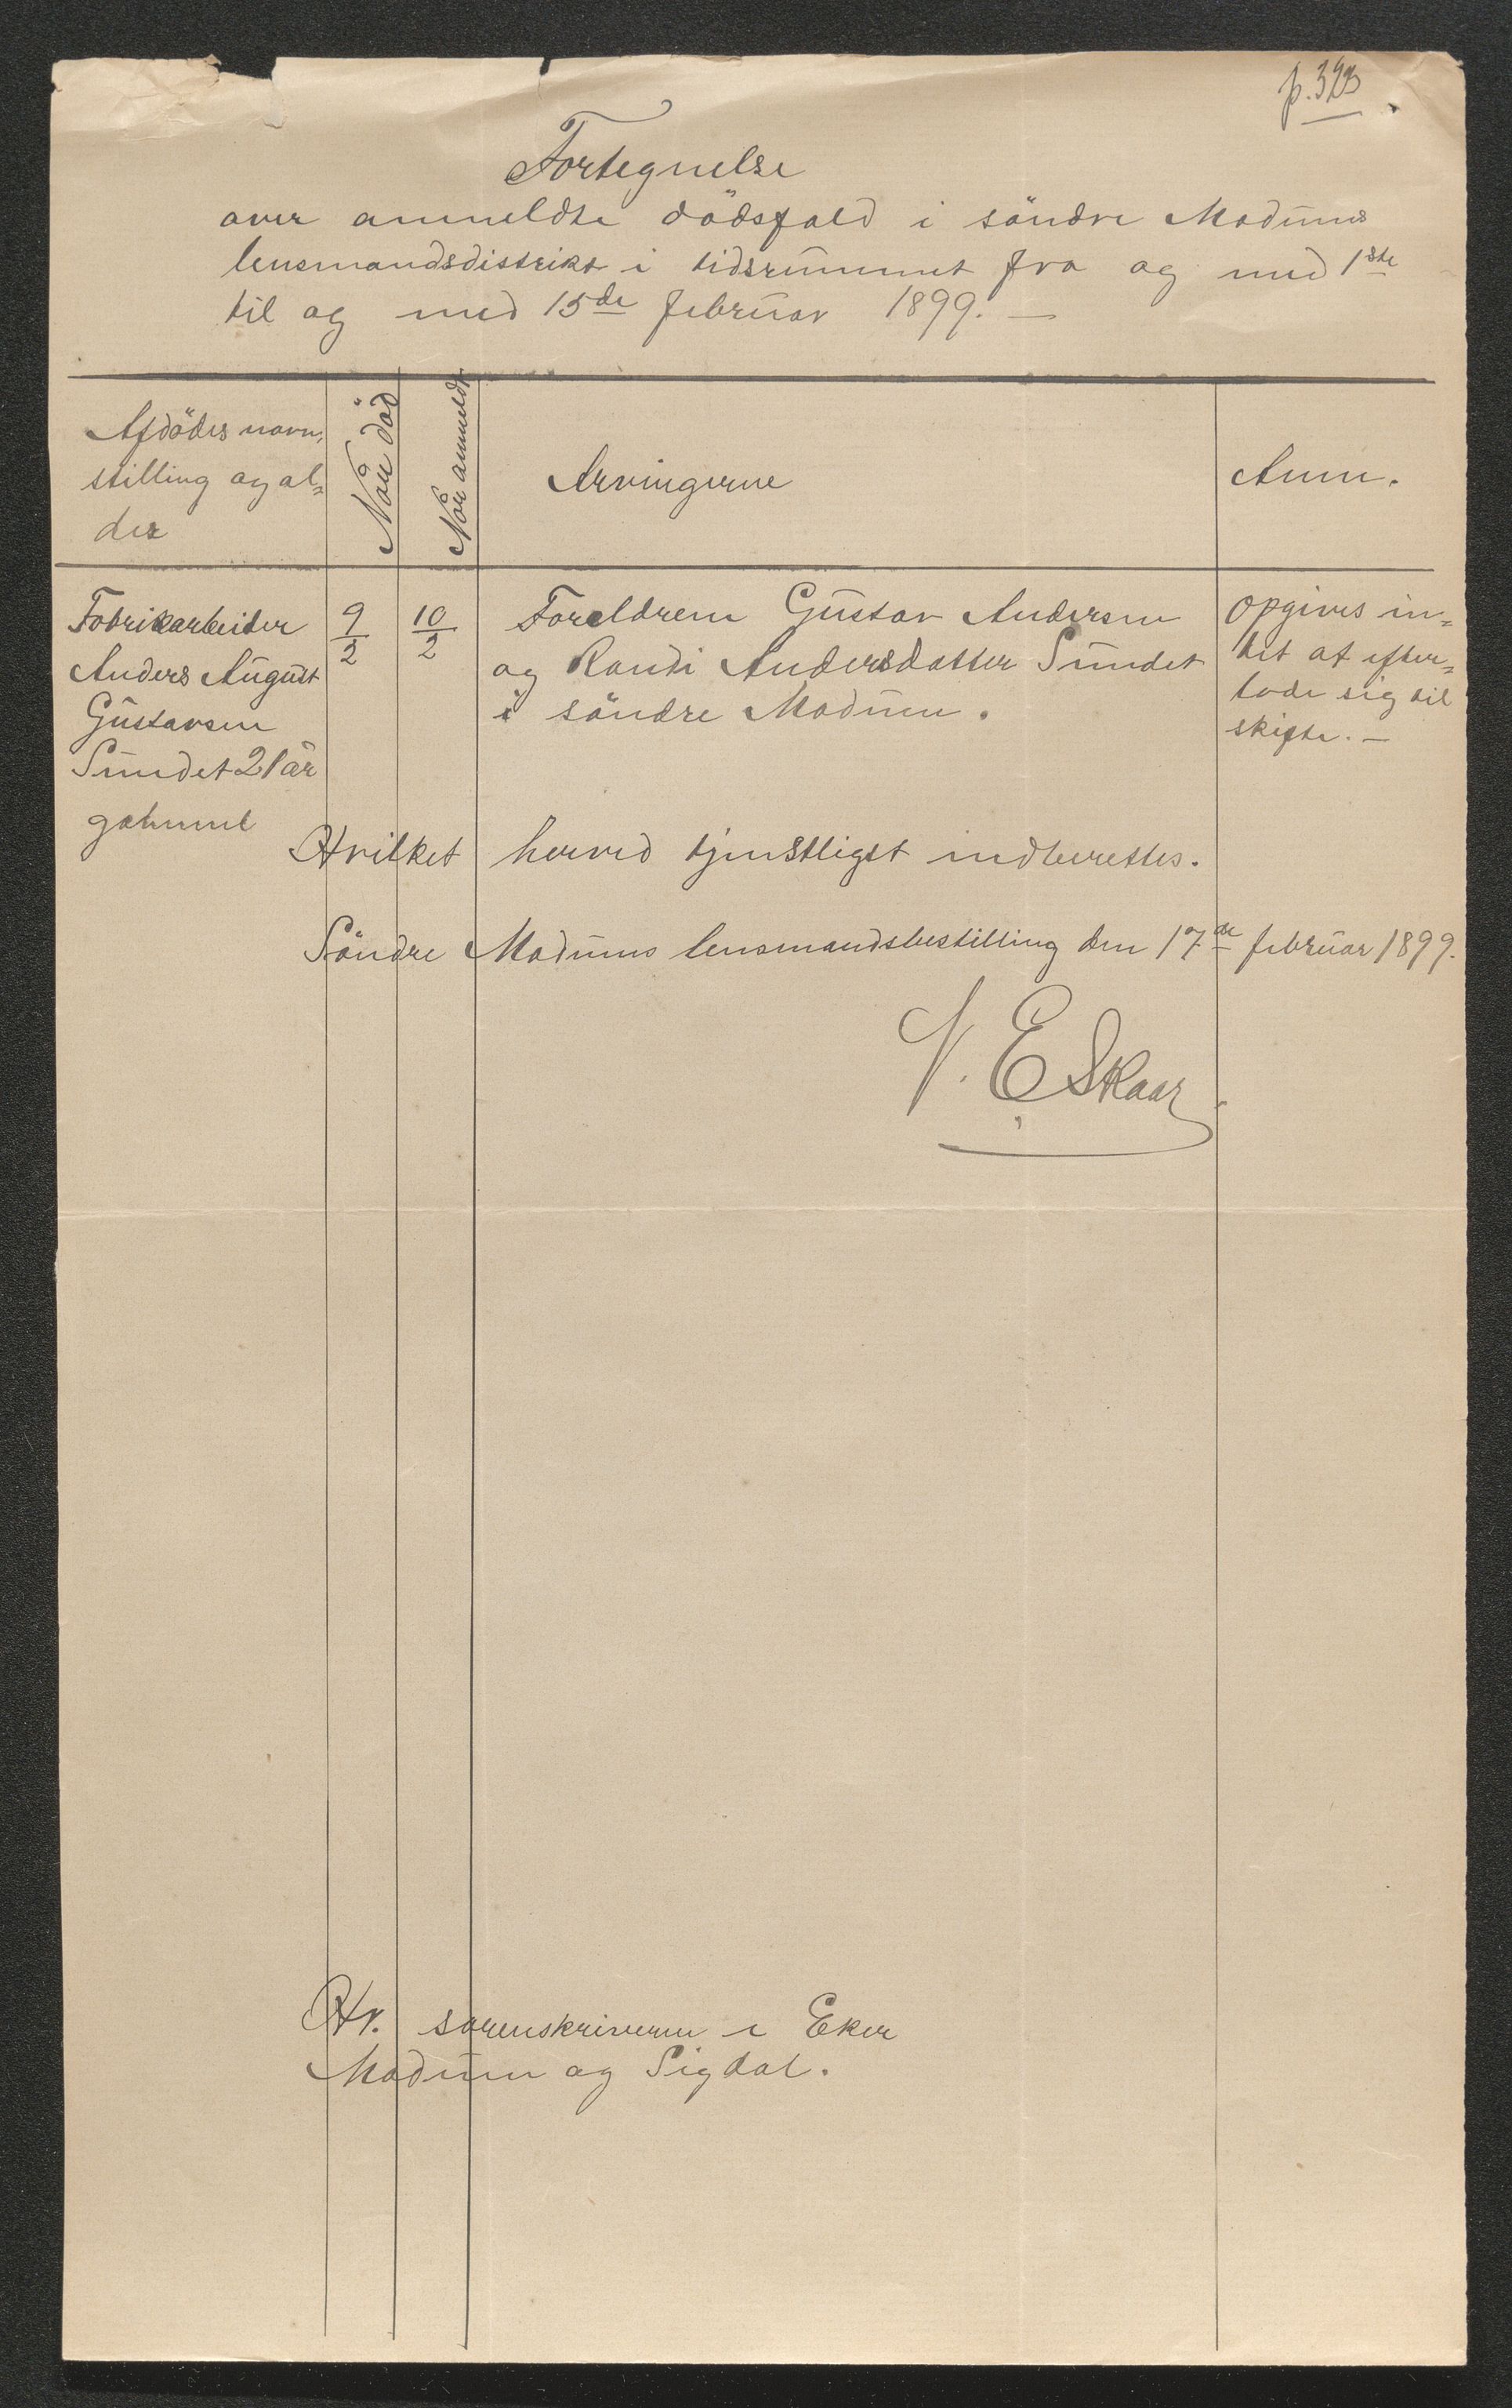 p. 323
Fortegnelse
over anmeldte dödsfald i söndre Modums
lensmandsdistrikt i tidsrummet fra og med 1ste
til og med 15de februar 1899. —
Afdödes navn,
stilling og al=
der
Når död
Når anmeldt
Arvingerne
Anm.
Fabrikarbeider
Anders August
Gustavsen
Sundet 21 år
gammel
9/2
10/2
Foreldrene Gustav Andersen
og Randi Andersdatter Sundet
i söndre Modum.
opgives in=
tet at efter=
lade sig til
skifte. —
Hvilket herved tjenstligst indberettes.
Söndre Modums lensmandsbestilling den 17de februar 1899.
E Skaar
Hr. sorenskriveren i Eker
Modum og Sigdal.